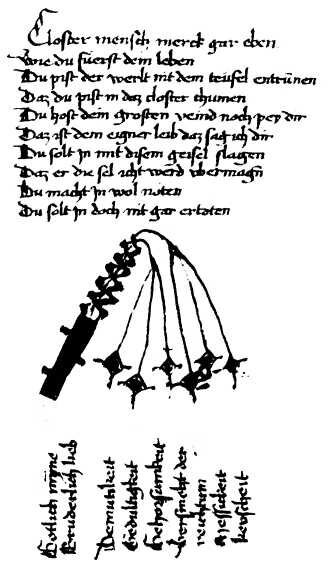 Closter mensch merck gar eben
Wie du fuerst dem leben
Du pist der werlt mit dem teufel entrünen
Daz du pist in daz closter chumen
Du host dem grosten veind noch pey dir
Daz ist dem eigner leib daz sag ich dir
Du solt in mit disem geisel slagen
Daz er die sel icht werd vbermagn
Du macht in wol noten
Du solt in doch nit gar ertoten
Gotlich mynne
Bruderlich lieb
Demutikeit
Gedultigkeit
Gehorsamkeit
Versmeht der
reichtum
Messikeit
Kevscheit